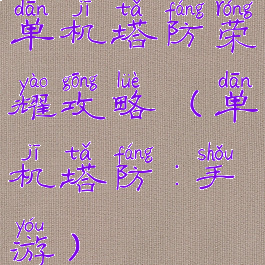 dān jī tǎ fáng róng
单机塔防荣
yào gōng lüè dān
耀攻略（单
jī tǎ fáng shǒu
机塔防：手
yóu
游）